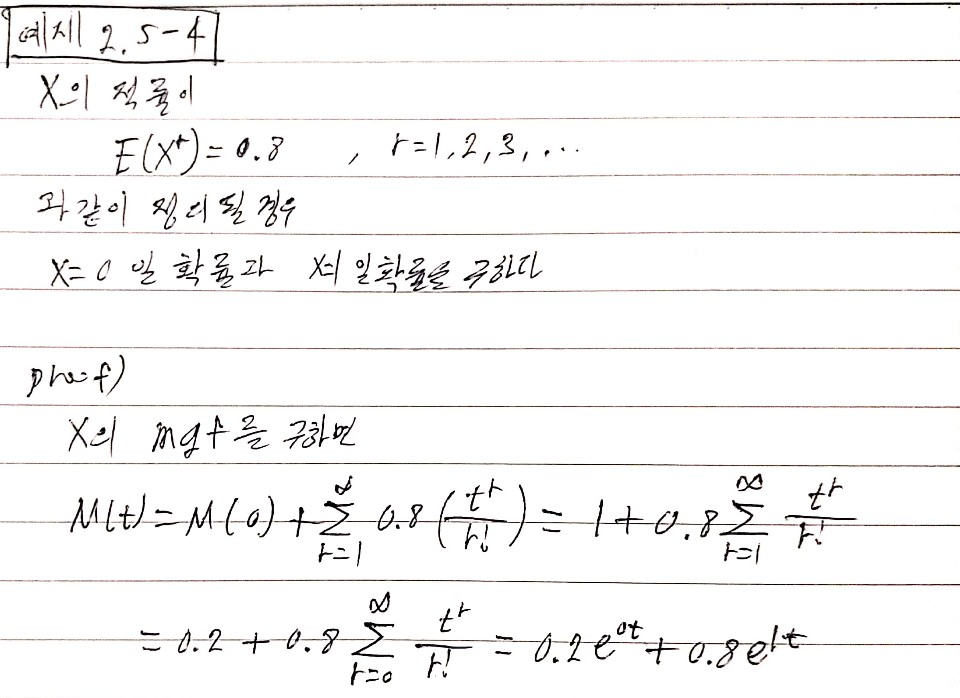 예제 2.5-4
X의 적률이
E(X^r) = 0.8 , r=1,2,3,...
과 같이 정의 될 경우
X=0 일 확률과 X=1 일 확률을 구하다
proof)
X의 mgf를 구하면
M(t) = M(0) + \sum_{r=1}^{∞} 0.8 (t^r/r!) = 1 + 0.8 \sum_{r=1}^{∞} t^r/r!
= 0.2 + 0.8 \sum_{r=0}^{∞} t^r/r! = 0.2e^{0t} + 0.8e^{1t}